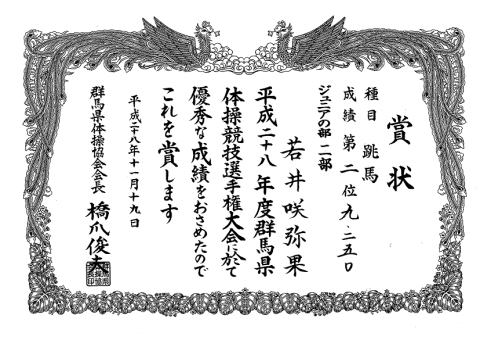 賞状
種目 跳馬
成績 第二位 九.二五〇
ジュニアの部 二部
若井咲弥果
平成二十八年度群馬県
体操競技選手権大会に於て
優秀な成績をおさめたので
これを賞します
平成二十八年十一月十九日
群馬県体操協会会長 橋爪俊夫